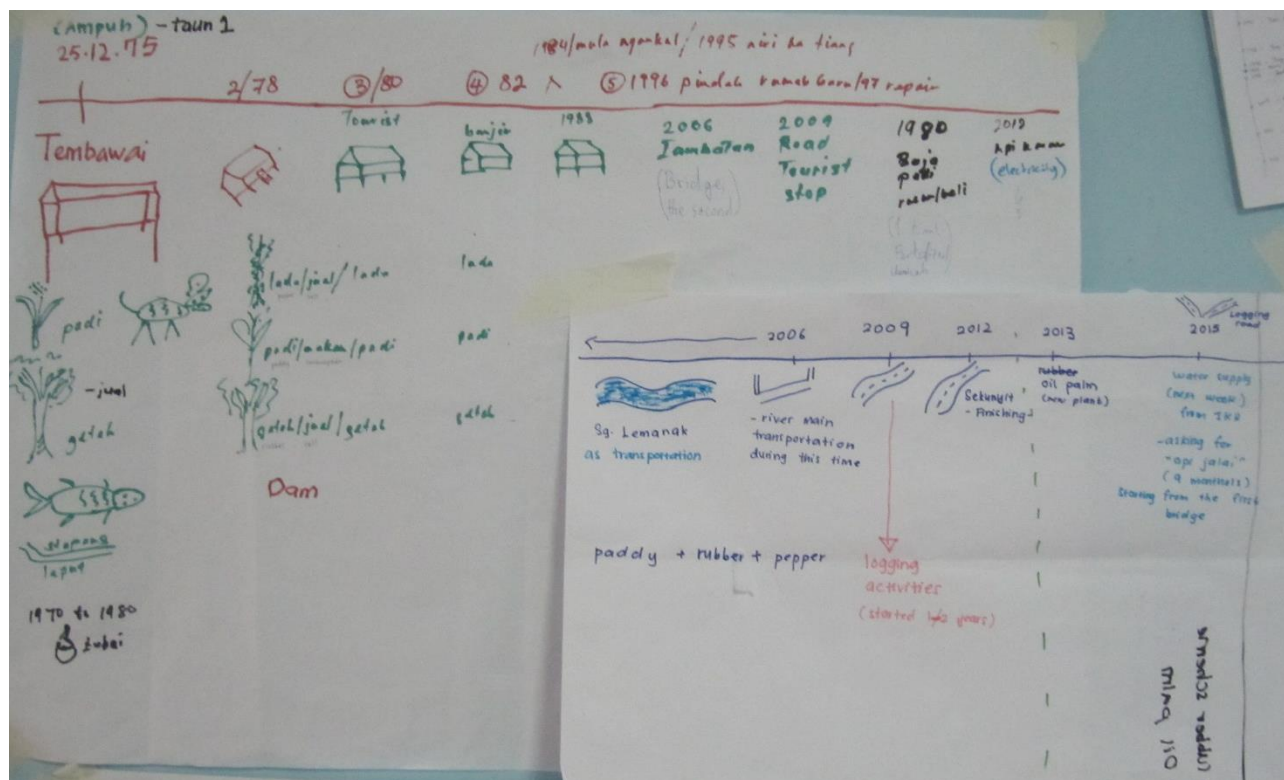 (Ampuh) - taun 1
25.12.75
1984/mula ngankat/ 1995 niri ka tiang
2/78 ③/80 ④ 82 ⑤ 1996 pindah rumah baru/97 repair
Tembawai
Tourist
banjir
1988
2006
Jambatan
(Bridge,
the second)
2009
Road
Tourist
stop
1980
Baja
padi
racun/beli
2012
Api
(electricity)
padi
lada/jual/lada
lada
padi/makan/padi
padi
- jual
getah
getah/jual/getah
getah
Dam
1970 to 1980
2006
2009
2012
2013
2015
Logging
road
Sg. Lemanak
as transportation
- river main
transportation
during this time
Sekunyit
- Finishing
rubber
oil palm
(new plant)
water supply
(next week)
from JKR
- asking for
"api jalai"
(9 months)
Starting from the first
bridge
paddy + rubber + pepper
logging
activities
(started 1/2 years)
oil palm
rubber scheme